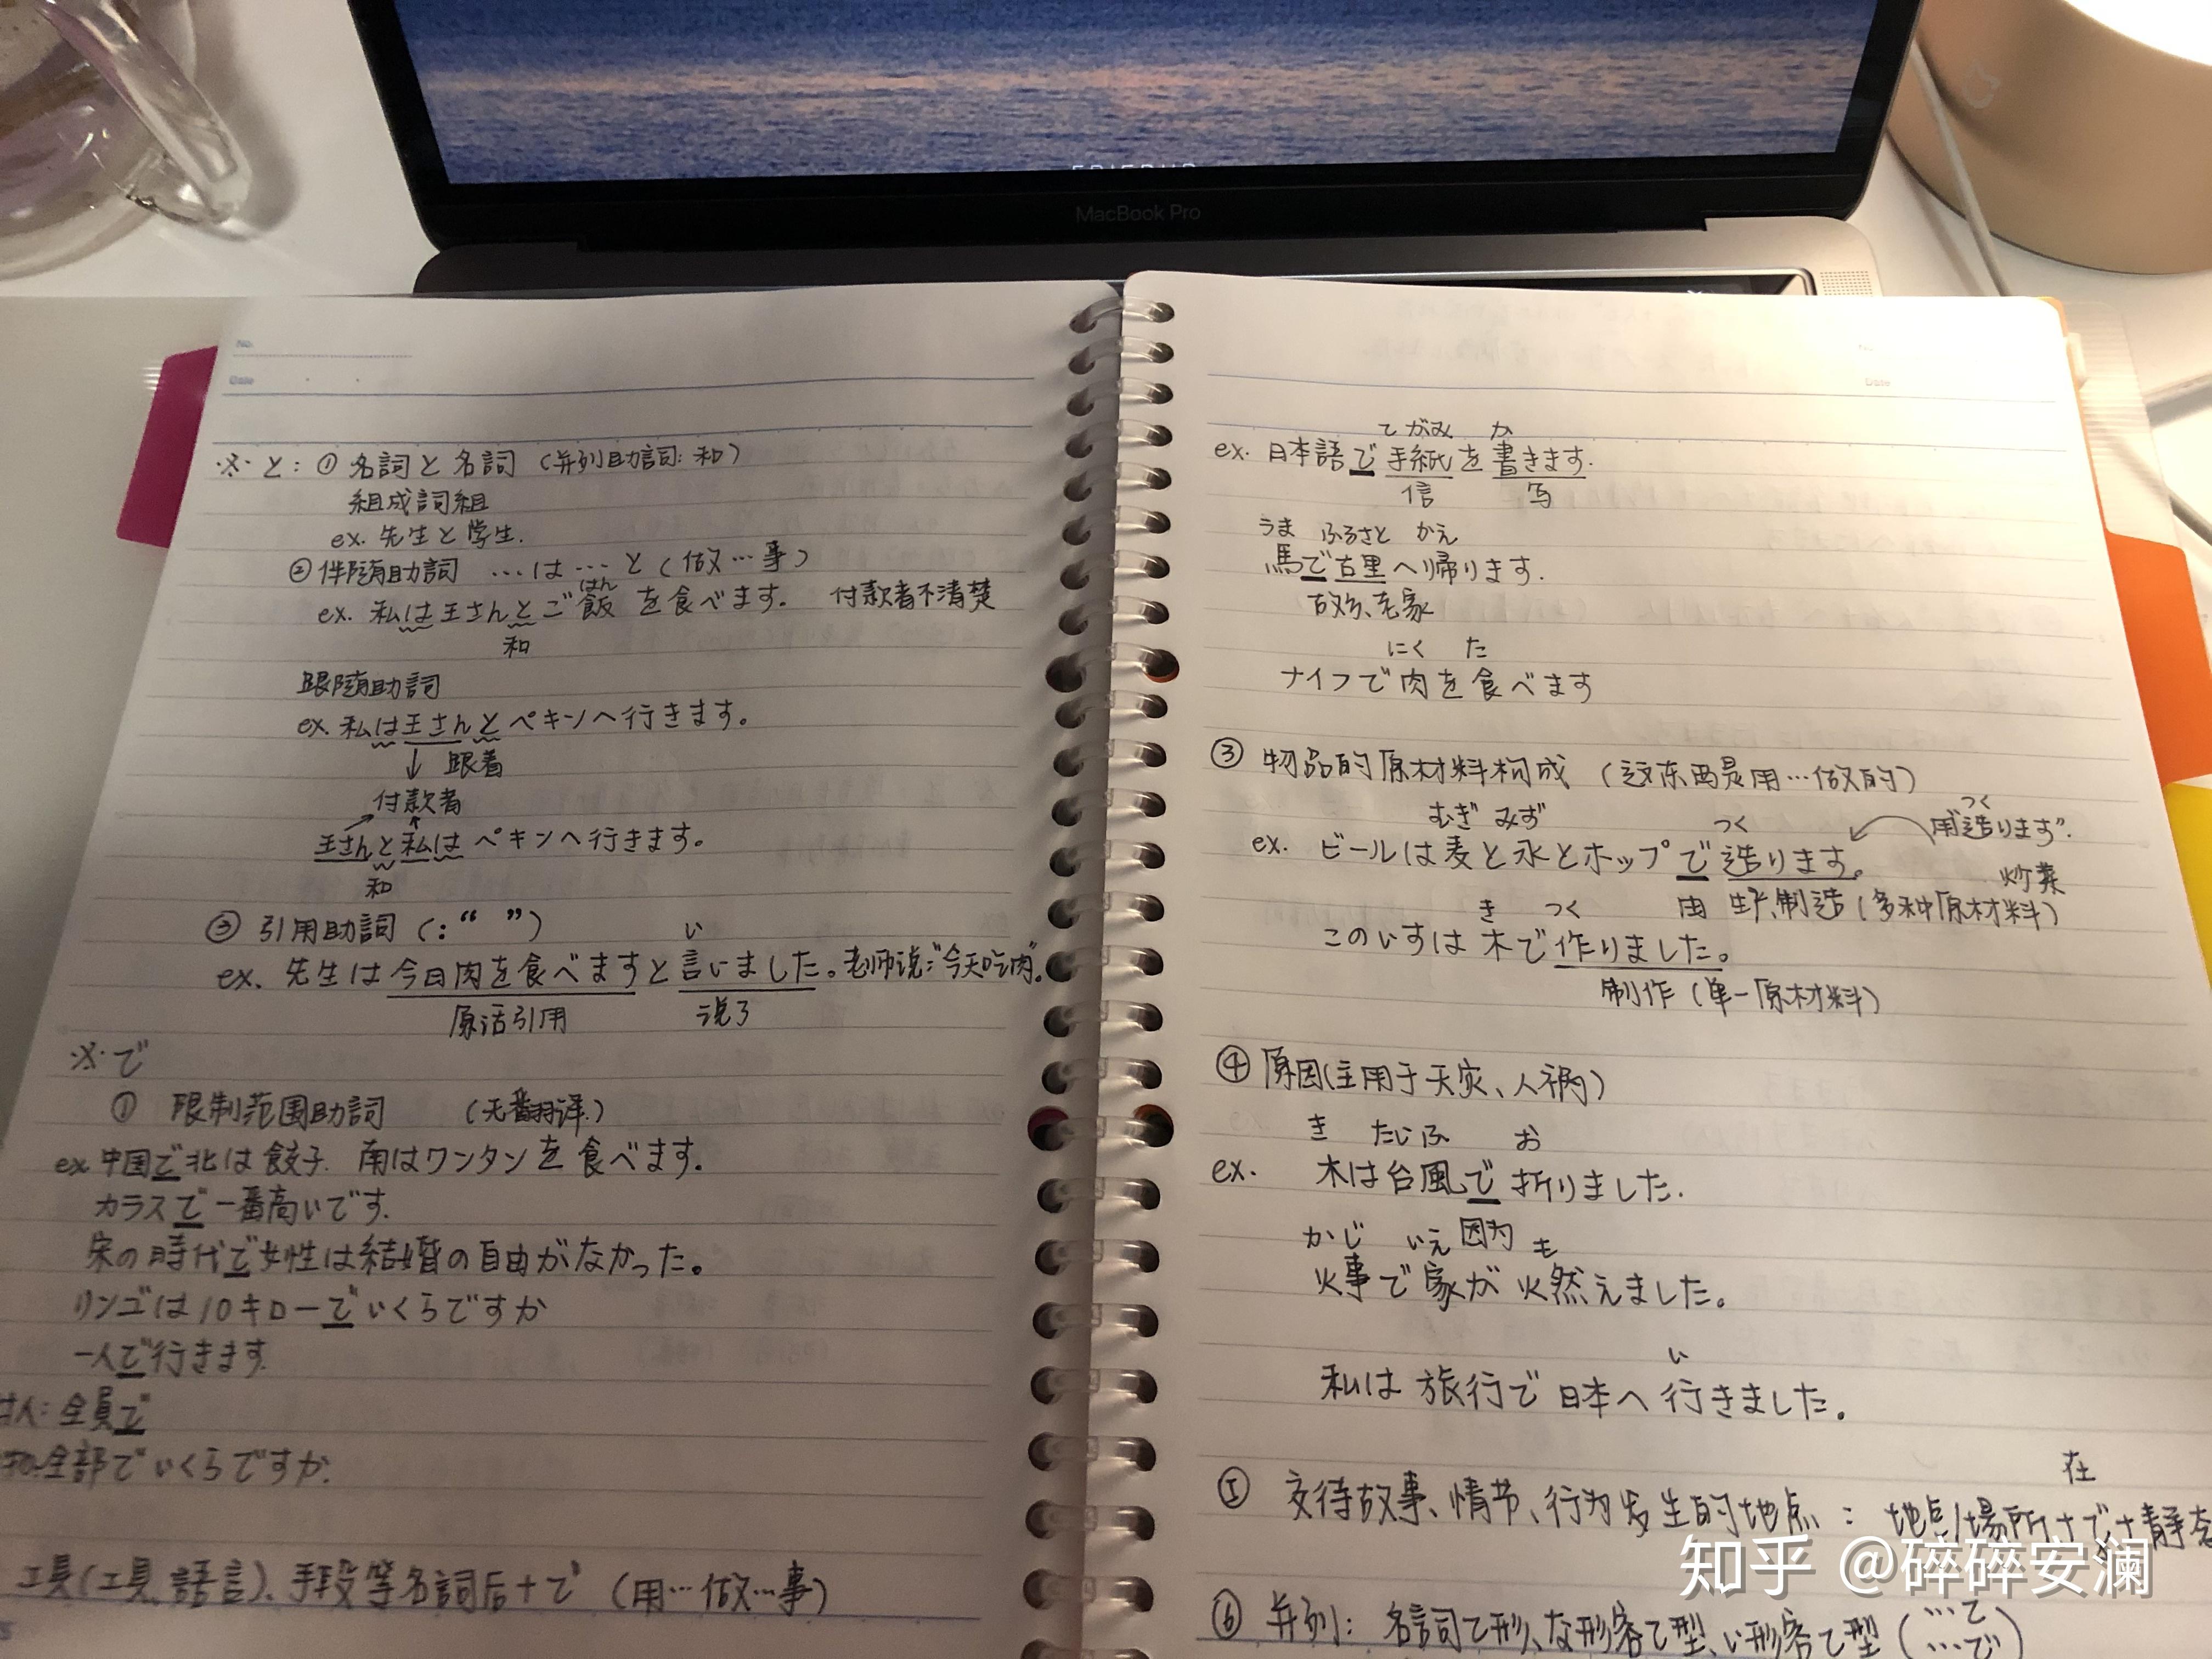 MacBook Pro
No.
Date
※ と：① 名詞と名詞（并列助詞：和）
組成詞組
ex. 先生と学生.
② 伴随助詞 …は…と（做…事）
はん
ex. 私は王さんとご飯を食べます。 付款者不清楚
和
跟随助詞
ex. 私は王さんとペキンへ行きます。
↓ 跟着
付款者
王さんと私はペキンへ行きます。
和
③ 引用助詞（：“ ”）
い
ex. 先生は今日肉を食べますと言いました。老师说：“今天吃肉”。
原话引用 说了
※ で
① 限制范围助詞 （无翻译.）
ex 中国で北は餃子. 南はワンタンを食べます。
カラスで一番高いです.
宋の時代で女性は結婚の自由がなかった。
リンゴは10キローでいくらですか
一人で行きます.
人：全員で
物：全部でいくらですか.
工具（工具、語言）、手段等名詞后+で （用…做…事）
Date
てがみ か
ex. 日本語で手紙を書きます.
信 写
うま ふるさと かえ
馬で古里へ帰ります.
故乡、老家
にく た
ナイフで肉を食べます
③ 物品的原材料构成 （这东西是用…做的）
むぎ みず つく つく
用“造ります”.
ex. ビールは麦と水とホップで造ります。
炒菜
由 生产、制造（多种原材料）
き つく
このいすは木で作りました。
制作（单一原材料）
④ 原因（主用于天灾、人祸）
き たいふ お
ex. 木は台風で折りました.
かじ いえ 因为 も
火事で家が燃えました。
い
私は旅行で日本へ行きました。
在
⑤ 交待故事、情节、行为发生的地点：地点/場所+で+静态
⑥ 并列：名詞て形、な形容て型、い形容て型（…て
…で）
知乎 @碎碎安澜